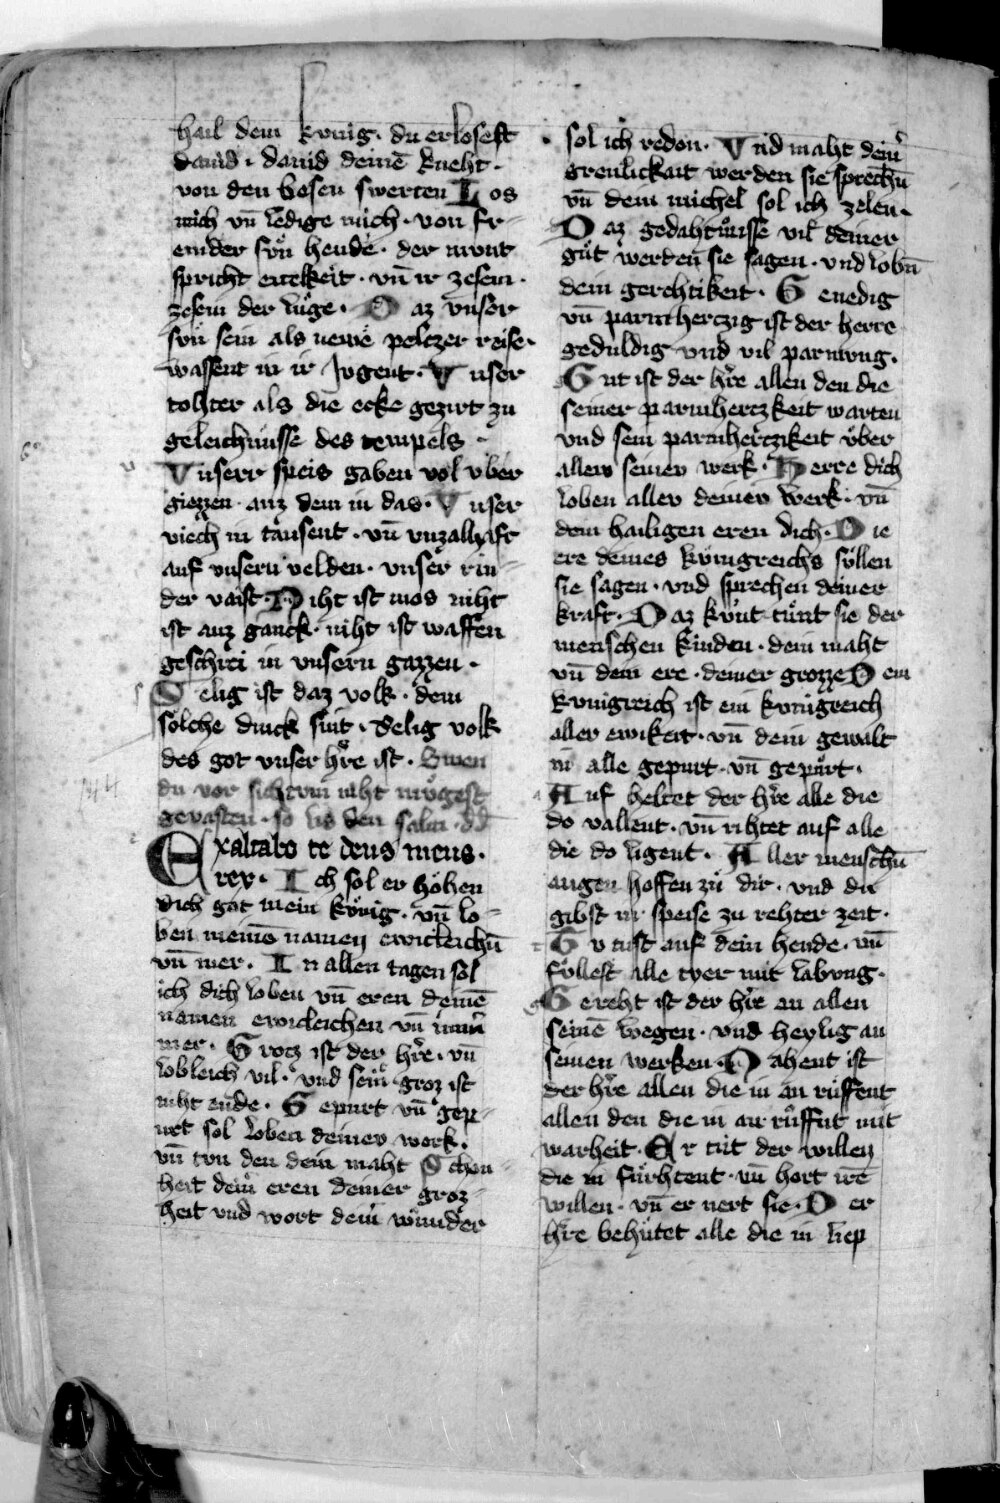 hail dem kvnig · du erlosest
dauid · dauid deinē kneht ·
von den bosen swerten Los
mich vn̄ ledige mich · von fr-
emder svͤn hende · der mvnt
spricht eitelkeit · vn̄ ir zesem ·
zesem der luͤge · Daz vnser
svͤn sein als newe pelczer reise ·
wassent in ir Jvgent · Vnser
tohter als die ecke gezirt zu
geleichnisse des tempels ·
Vnserr speis gaben vol vber
giezzen · auz dem in das · Vnser
viech in tausent · vn̄ vnzallhaft
auf vnsern velden · vnser rin-
der vaist · Niht ist mos niht
ist auz ganck · niht ist waffen
geschrei in vnsern gazzen ·
Selig ist daz volk · dem
solche dinck sint · Selig volk
des got vnser hr̄e ist · Swen
du vor sichtvm niht mvgest
gevasten · so lis den salm · dd
Exaltabo te deus meus ·
rex · Ich sol er hoͤhen
dich got mein kvͤnig · vn̄ lo-
ben meinē namen ewicleichn̄
vn̄ mer · In allen tagen sol
ich dich loben vn̄ eren deinē
namen ewicleichen vn̄ im̄
mer · Groz ist der hr̄e · vn̄
lobleich vil · vnd seinˀ groz ist
niht ende · Gepurt vn̄ gep-
urt sol loben deinev werk ·
vn̄ tvn den dein maht Schon-
heit deinˀ eren deiner groz-
heit vnd wort deinˀ wunder
sol ich redon · Vnd maht deinˀ
greulickait werden sie sprechn̄
vn̄ dein michel sol ich zelen ·
Daz gedahtnuͤsse vil deiner
guͤt werden sie sagen · vnd lobn̄
dein gerehtikeit · Genedig
vn̄ parmherczig ist der herre
geduldig vnd vil parmvng ·
Gut ist der hr̄e allen den die
seiner parmherczkeit warten
vnd sein parmherczikeit vͤber
allev seinev werk · Herre dich
loben allev deinev werk · vn̄
dein hailigen eren dich · Die
ere deines kvnigreichs suͤllen
sie sagen · vnd sprechen deiner
kraft · Daz kvnt tuͤnt sie der
menschen kinden · dein maht
vn̄ dein ere · deiner grozze Dein
kvnigreich ist ein kvnigreich
aller ewikeit · vn̄ dein gewalt
in alle gepurt · vn̄ gepuͤrt ·
Auf heltet der hr̄e alle die
do vallent · vn̄ rihtet auf alle
die do ligent · Aller menschn̄
augen hoffen zuͤ dir · vnd du
gibst in speise zu rehter zeit ·
Du tust auf dein hende · vn̄
fuͤllest alle tyer mit labvng ·
Gereht ist der hr̄e an allen
seinē wegen · vnd heylig an
seinen werken · Nahent ist
der hr̄e allen die in an ruͤffent
allen den die in an ruͤffnt mit
warheit · Er tut der willen
die in fuͤrhtent · vn̄ hort irē
willen · vn̄ er nert sie · Der
hr̄e behuͤtet alle die in liep